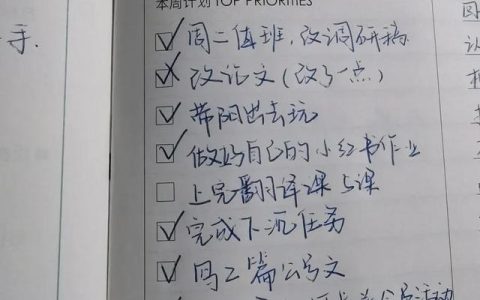 手.
本周计划 TOP PRIORITIES
周二值班,改调研稿
改论文(改了一点)
带阳出去玩
做好自己的小红书作业
上完翻译课5课
完成下沉任务
写2篇公号文